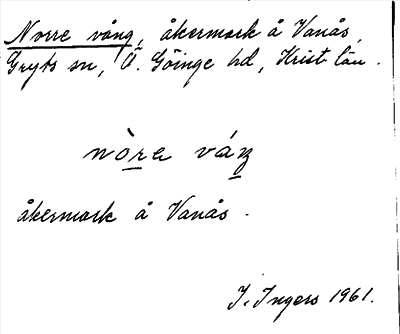 Norre vång, åkermark å Vanås,
Gryts sn, Ö. Göinge hd, Krist län.
nòra váŋ
åkermark å Vanås.
I. Ingers 1961.